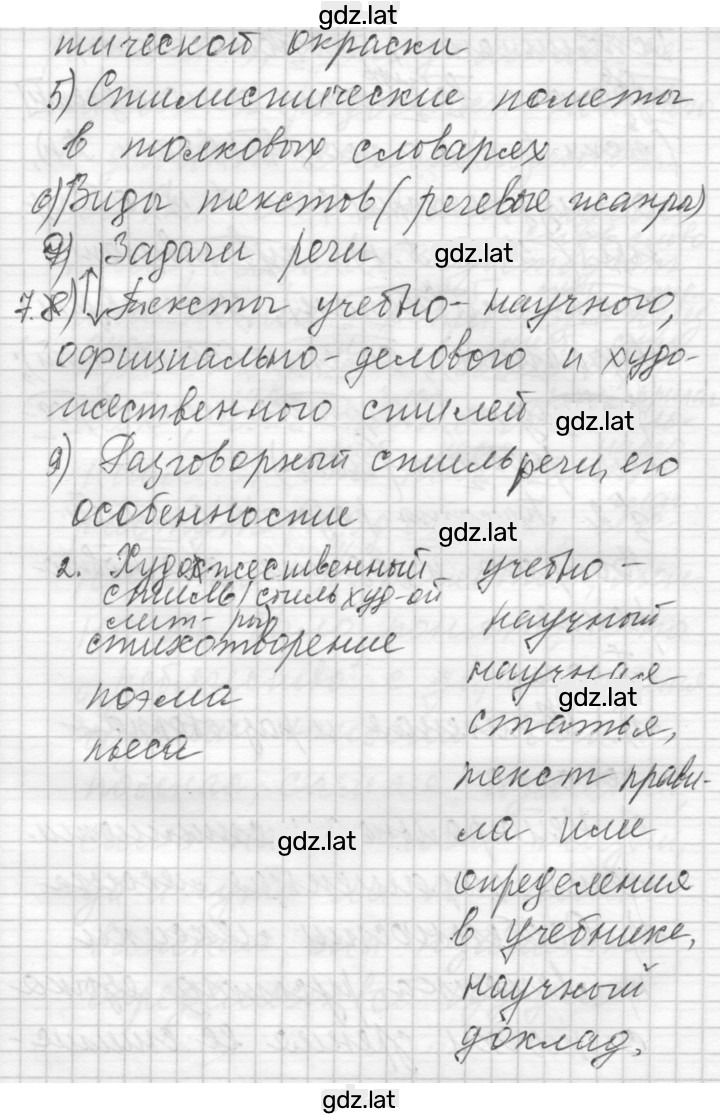 gdz.lat
тической окраски
5) Стилистические пометы
в толковых словарях
6) Виды текстов (речевые жанры)
7) Задачи речи
gdz.lat
7. 8) Тексты учебно-научного,
официально-делового и худо-
жественного стилей
gdz.lat
9) Разговорный стиль речи, его
особенностие
gdz.lat
2. Художественный
стиль (стиль худ-ой
лит-ры)
стихотворение
поэма
пьеса
учебно-
научный
научная
gdz.lat
статья,
текст прави-
ла или
определения
в учебнике,
научный
доклад,
gdz.lat
gdz.lat